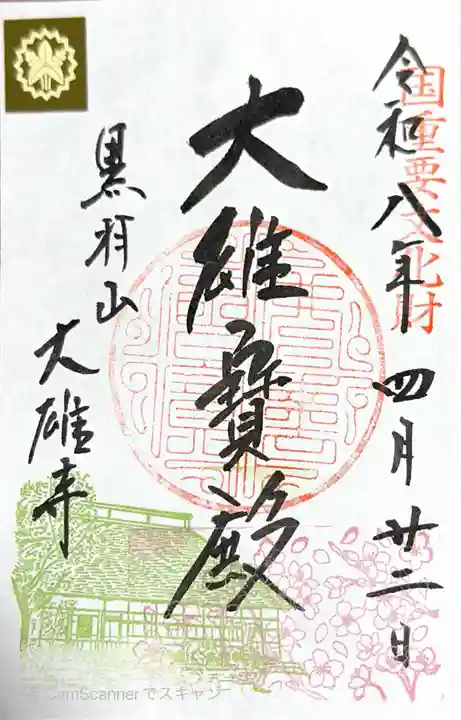 国重要文化財
令和八年 四月廿二日
大雄寶殿
黒羽山
大雄寺
CamScannerでスキャン